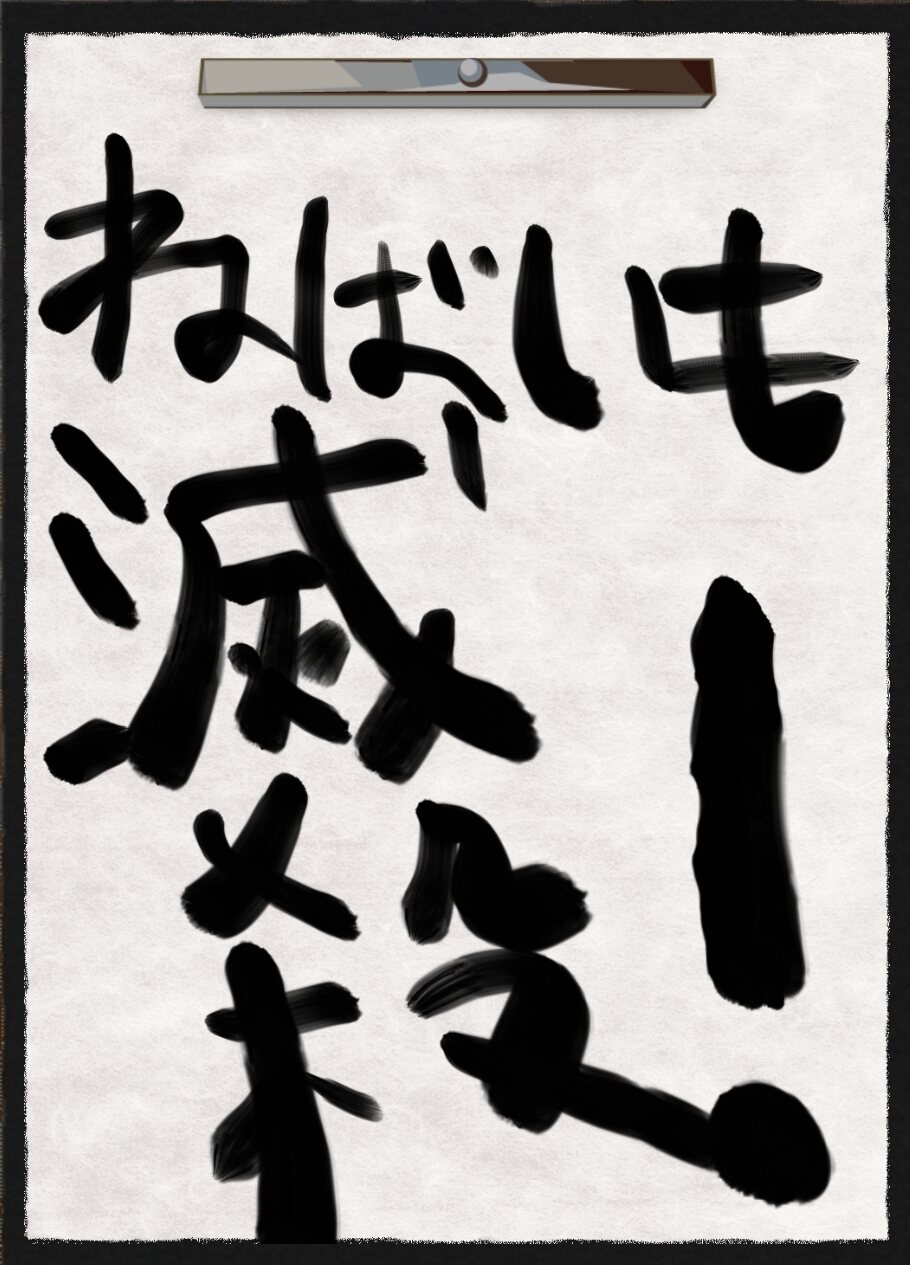 ねばいも
滅
殺!